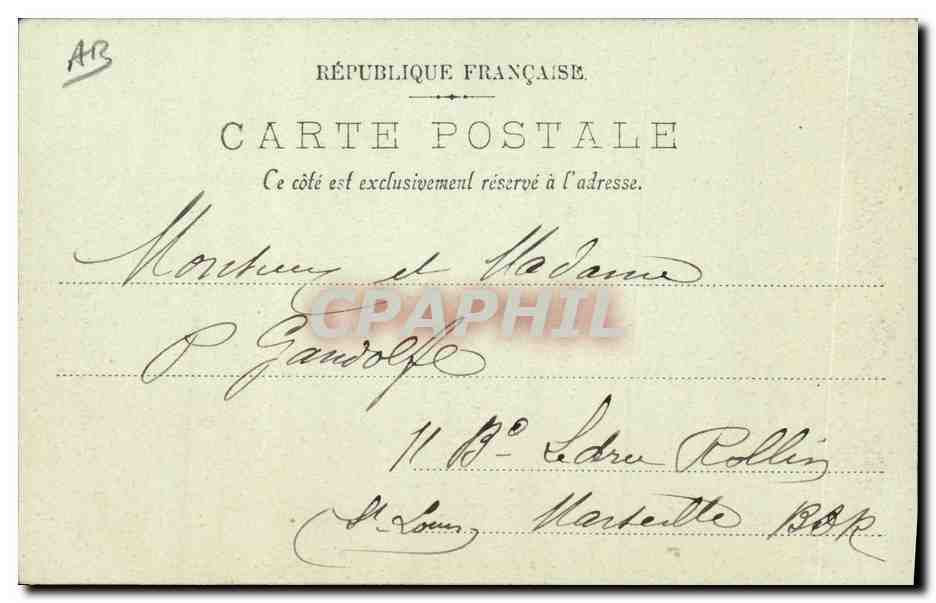 AB
RÉPUBLIQUE FRANÇAISE.
CARTE POSTALE
Ce côté est exclusivement réservé à l'adresse.
Monsieur et Madame
CPAPHIL
P Gandolfe
11 Bd Ledru Rollin
(St Louis) Marseille BDR